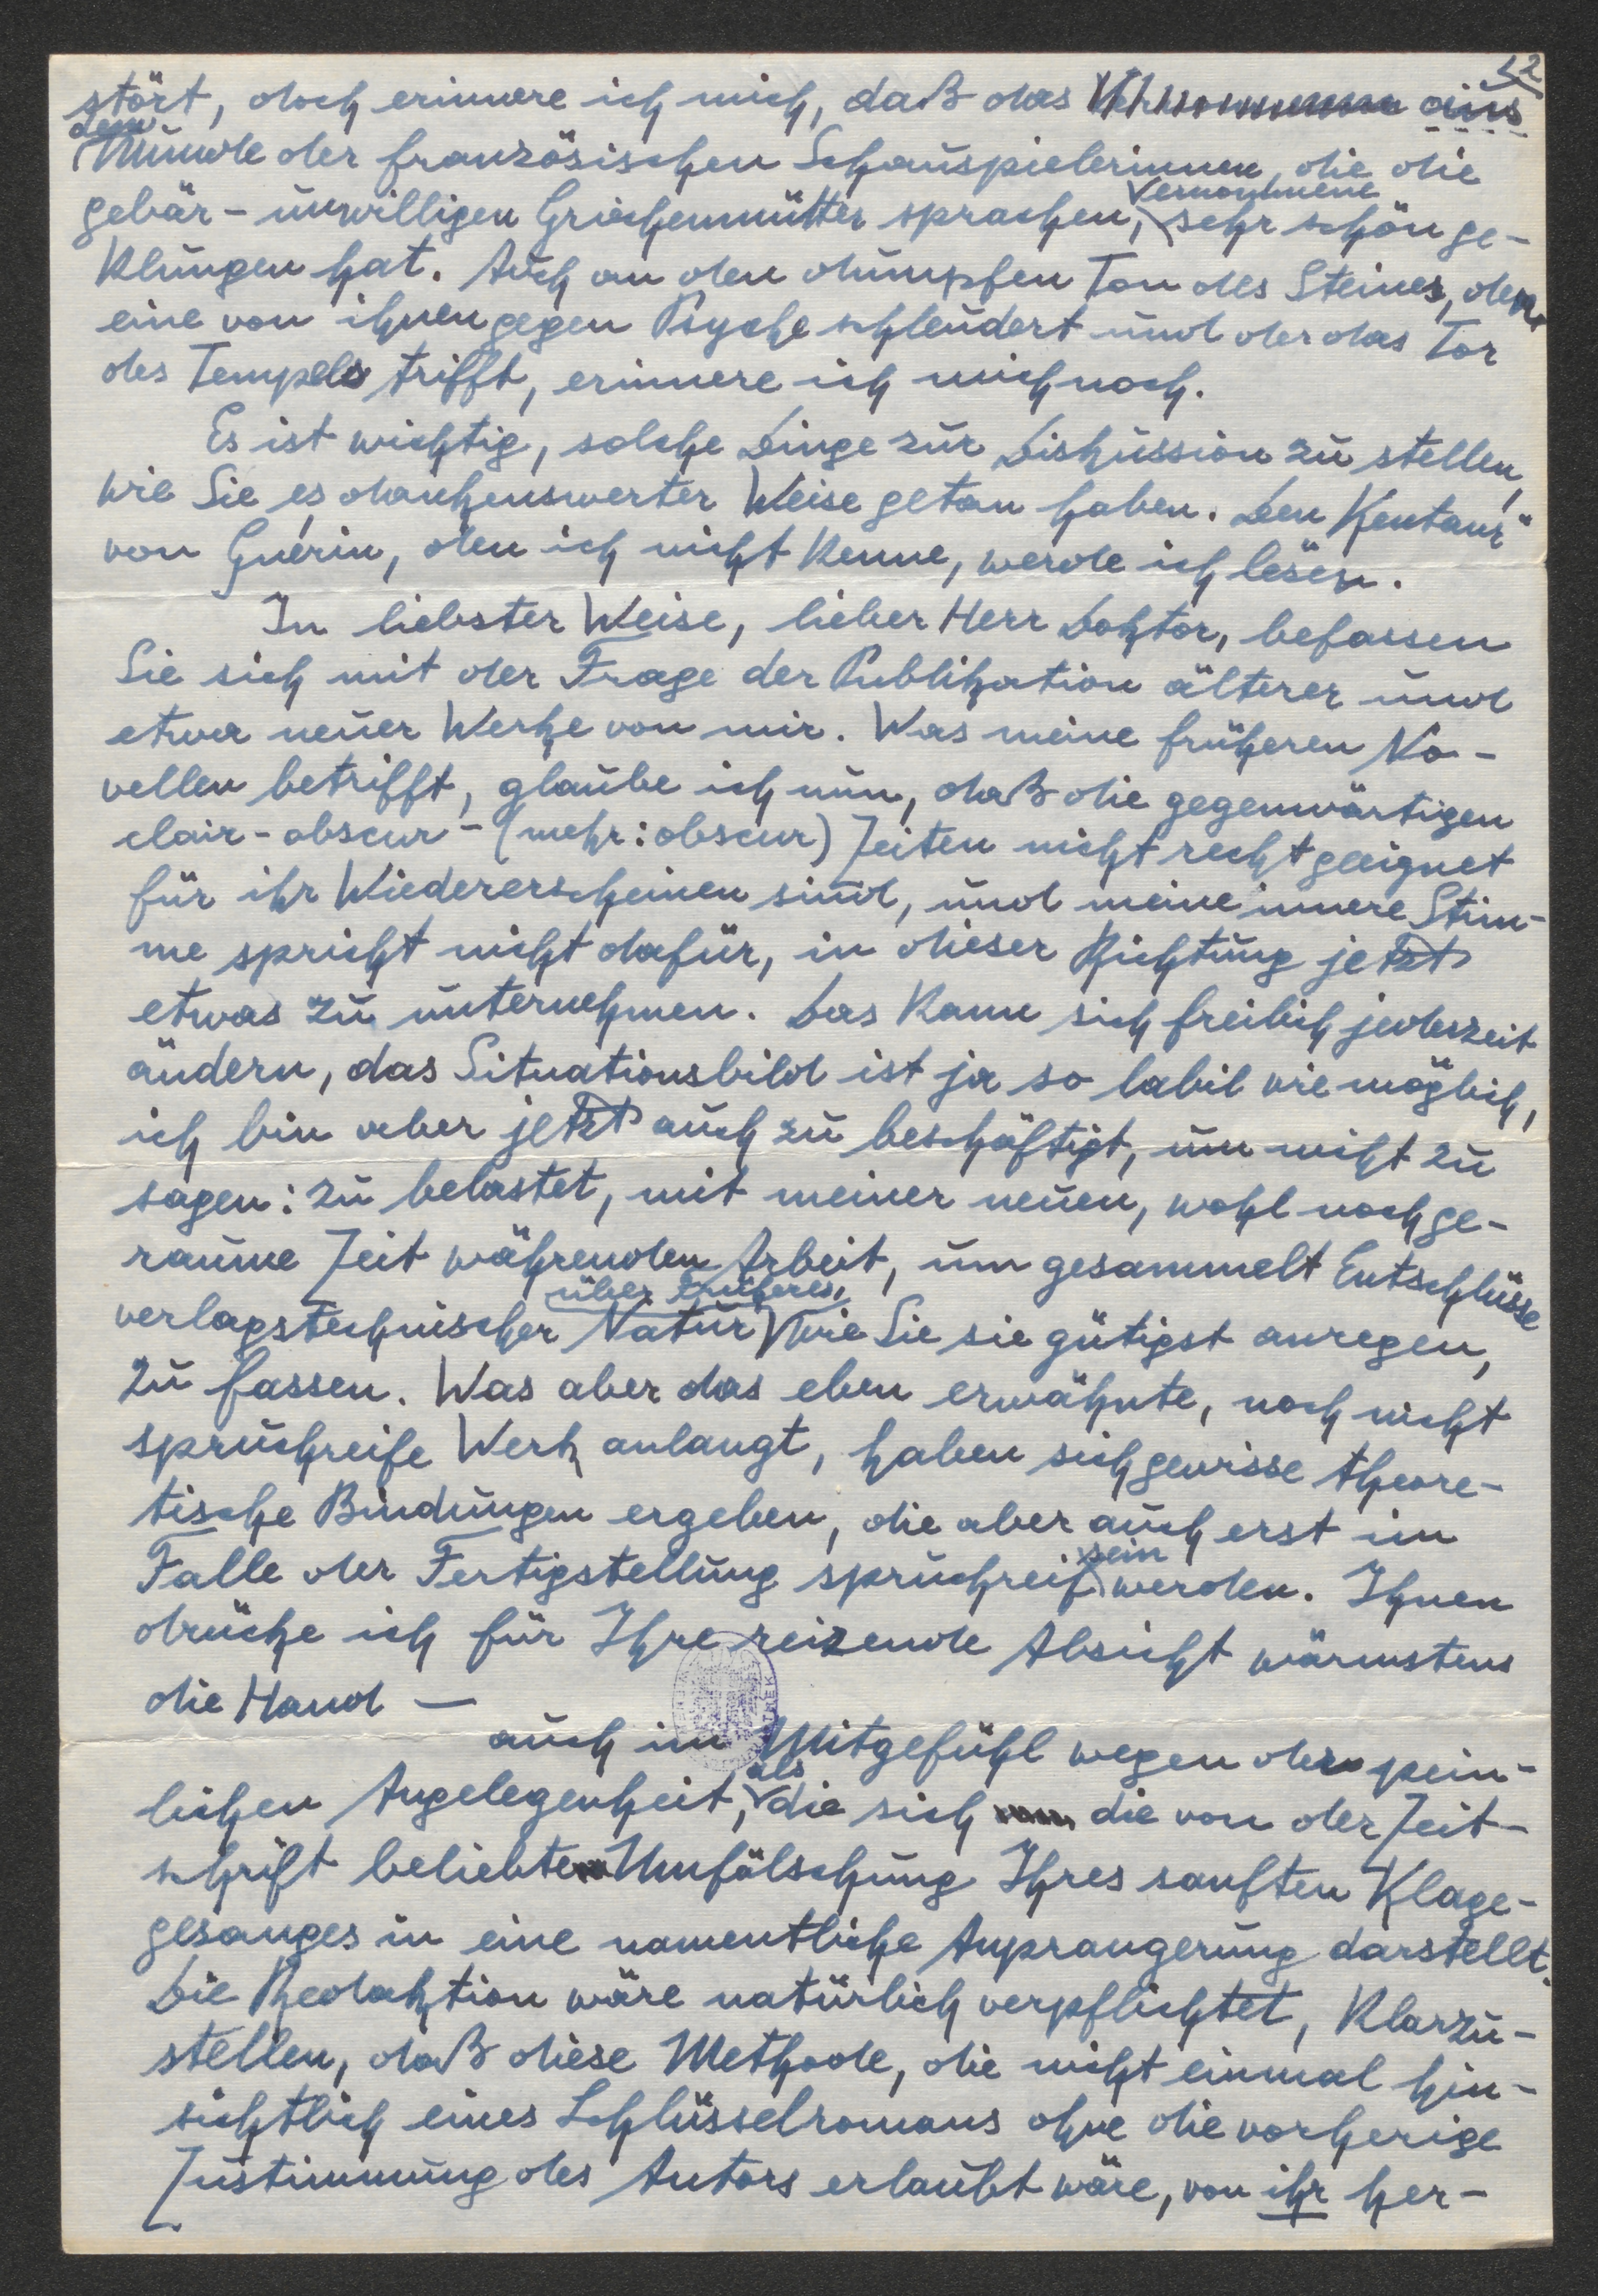 2
stört, doch erinnere ich mich, daß das aus
dem
Munde der französischen Schauspielerinnen, die die
Vernommene
gebär-unwilligen Griechenmütter sprachen, sehr schön ge-
klungen hat. Auch an den dumpfen Ton des Steines, den
eine von ihnen gegen Psyche schleudert und der das Tor
des Tempels trifft, erinnere ich mich noch.
Es ist wichtig, solche Dinge zur Diskussion zu stellen,
wie Sie es dankenswerter Weise getan haben. Den „Kentaur“
von Guérin, den ich nicht kenne, werde ich lesen.
In liebster Weise, lieber Herr Doktor, befassen
Sie sich mit der Frage der Publikation älterer und
etwa neuer Werke von mir. Was meine früheren No-
vellen betrifft, glaube ich nun, daß die gegenwärtigen
clair-obscur-(mehr: obscur) Zeiten nicht recht geeignet
für ihr Wiedererscheinen sind, und meine innere Stim-
me spricht nicht dafür, in dieser Richtung jetzt
etwas zu unternehmen. Das kann sich freilich jederzeit
ändern, das Situationsbild ist ja so labil wie möglich,
ich bin aber jetzt auch zu beschäftigt, um nicht zu
sagen: zu belastet, mit meiner neuen, wohl noch ge-
raume Zeit währenden Arbeit, um gesammelt Entschlüsse
über Früheres,
verlagstechnischer Natur wie Sie sie gütigst anregen,
zu fassen. Was aber das eben erwähnte, noch nicht
spruchreife Werk anlangt, haben sich gewisse theore-
tische Bindungen ergeben, die aber auch erst im
sein
Falle der Fertigstellung spruchreif werden. Ihnen
drücke ich für Ihre reizende Absicht wärmstens
die Hand —
auch im Mitgefühl wegen der pein-
als
lichen Angelegenheit, die sich die von der Zeit-
schrift beliebte Umfälschung Ihres sanften Klage-
gesanges in eine namentliche Anprangerung darstellt.
Die Redaktion wäre natürlich verpflichtet, klarzu-
stellen, daß diese Methode, die nicht einmal hin-
sichtlich eines Schlüsselromans ohne die vorherige
Zustimmung des Autors erlaubt wäre, von ihr her-